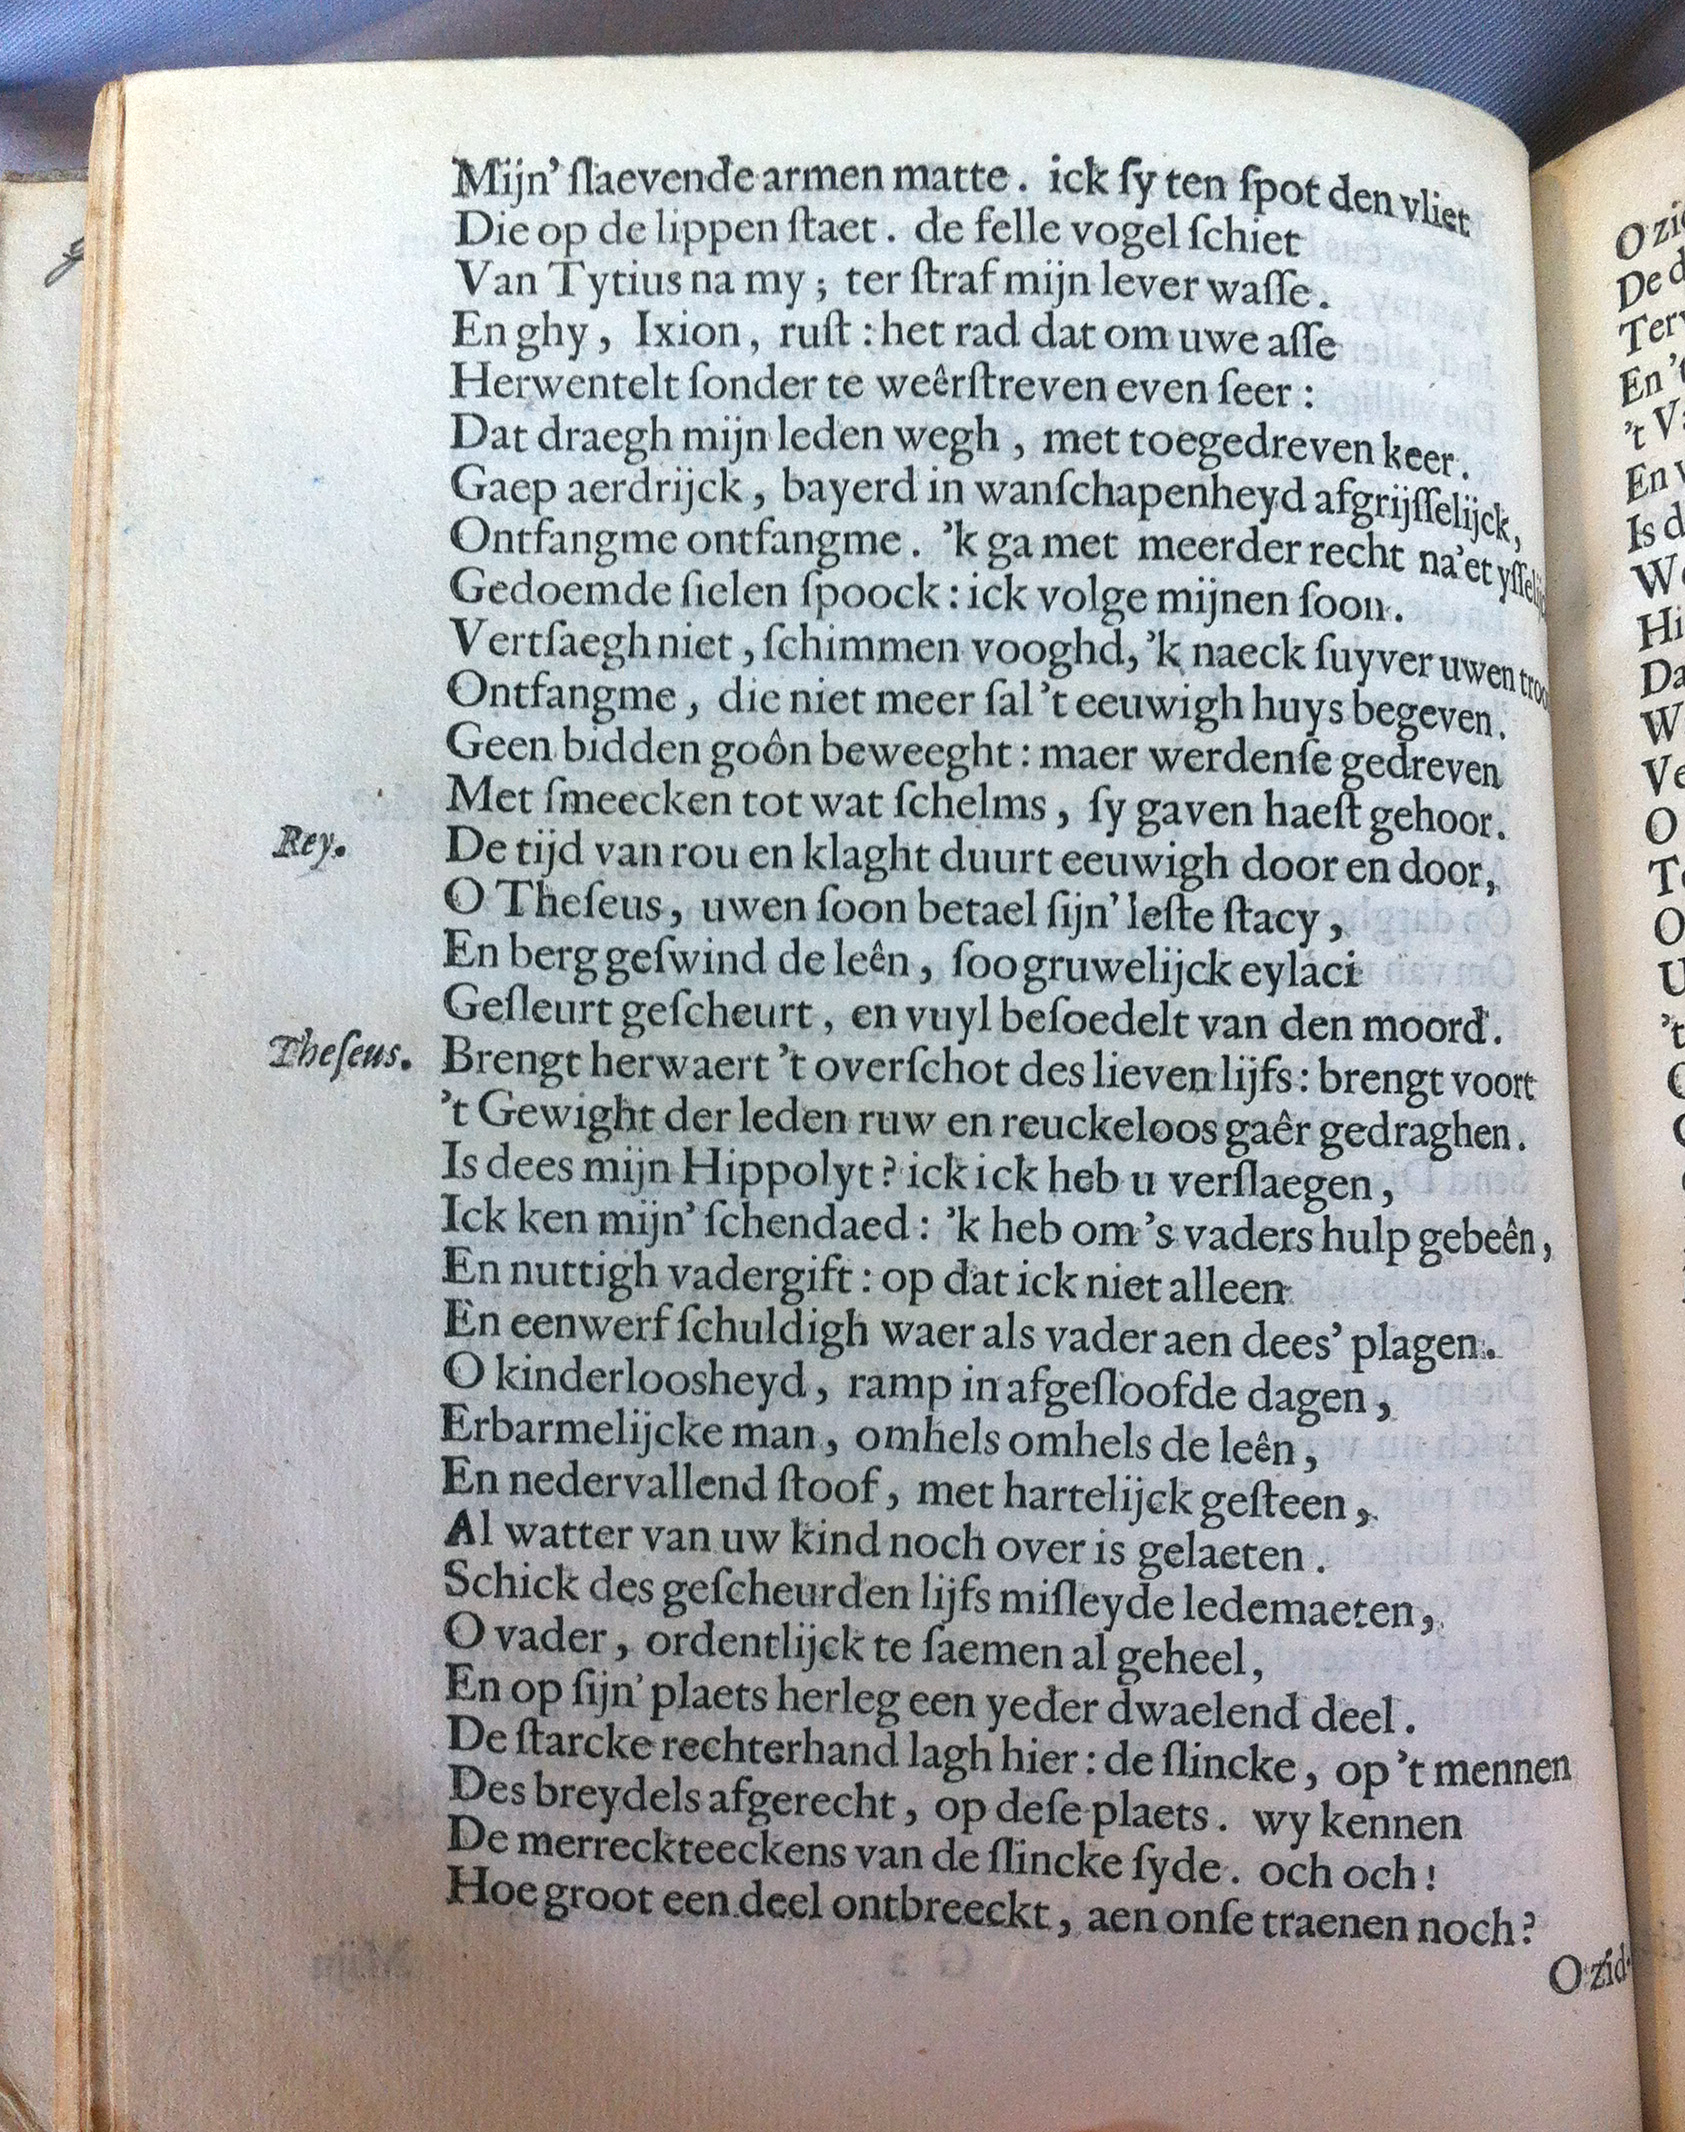 Mijn’ ſlaevende armen matte. ick ſy ten ſpot den vliet
Die op de lippen ſtaet. de felle vogel ſchiet
Van Tytius na my; ter ſtraf mijn lever waſſe.
En ghy, Ixion, ruſt: het rad dat om uwe aſſe
Herwentelt ſonder te weêrſtreven even ſeer:
Dat draegh mijn leden wegh, met toegedreven keer.
Gaep aerdrijck, bayerd in wanſchapenheyd afgrijſſelijck,
Ontfangme ontfangme. ’k ga met meerder recht na’et
Gedoemde ſielen ſpoock: ick volge mijnen ſoon.
Vertſaegh niet, ſchimmen vooghd, ’k naeck ſuyver uwen
Ontfangme, die niet meer ſal ’t eeuwigh huys begeven.
Geen bidden goôn beweeght: maer werdenſe gedreven
Met ſmeecken tot wat ſchelms, ſy gaven haeſt gehoor.
Rey. De tijd van rou en klaght duurt eeuwigh door en door,
O Theſeus, uwen ſoon betael ſijn’ leſte ſtacy,
En berg geſwind de leên, ſoo gruwelijck eylaci
Geſleurt geſcheurt, en vuyl beſoedelt van den moord.
Theſeus. Brengt herwaert ’t overſchot des lieven lijfs: brengt voort
’t Gewight der leden ruw en reuckeloos gaêr gedraghen.
Is dees mijn Hippolyt? ick ick heb u verſlaegen,
Ick ken mijn’ ſchendaed: ’k heb om ’s vaders hulp gebeên,
En nuttigh vadergift: op dat ick niet alleen
En eenwerf ſchuldigh waer als vader aen dees’ plagen.
O kinderloosheyd, ramp in afgeſloofde dagen,
Erbarmelijcke man, omhels omhels de leên,
En nedervallend ſtoof, met hartelijck geſteen,
Al watter van uw kind noch over is gelaeten.
Schick des geſcheurden lijfs miſleyde ledemaeten,
O vader, ordentlijck te ſaemen al geheel,
En op ſijn’ plaets herleg een yeder dwaelend deel.
De ſtarcke rechterhand lagh hier: de ſlincke, op ’t mennen
Des breydels afgerecht, op deſe plaets. wy kennen
De merreckteeckens van de ſlincke ſyde. och och!
Hoe groot een deel ontbreeckt, aen onſe traenen noch?
O zid-